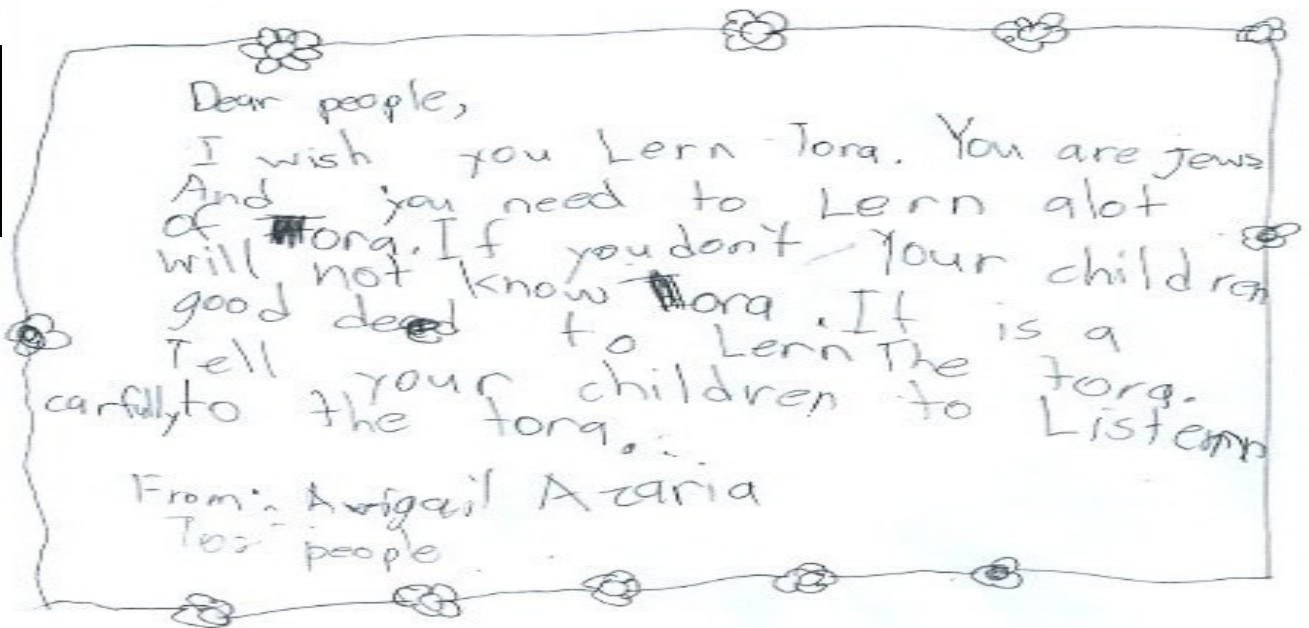 Dear people,
I wish you Lern Tora. You are Jews
And you need to Lern alot
of Tora. If you don't your children
will not know Tora. It is a
good deed to Lern The tora.
Tell your children to Listen
carfully to the tora.
From: Avigail Azaria
To: people